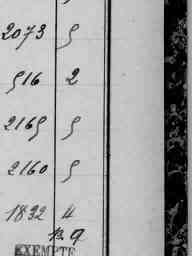 2073 5
516 2
2165 5
2160 5
1832 4
B. 9
EXEMPTE